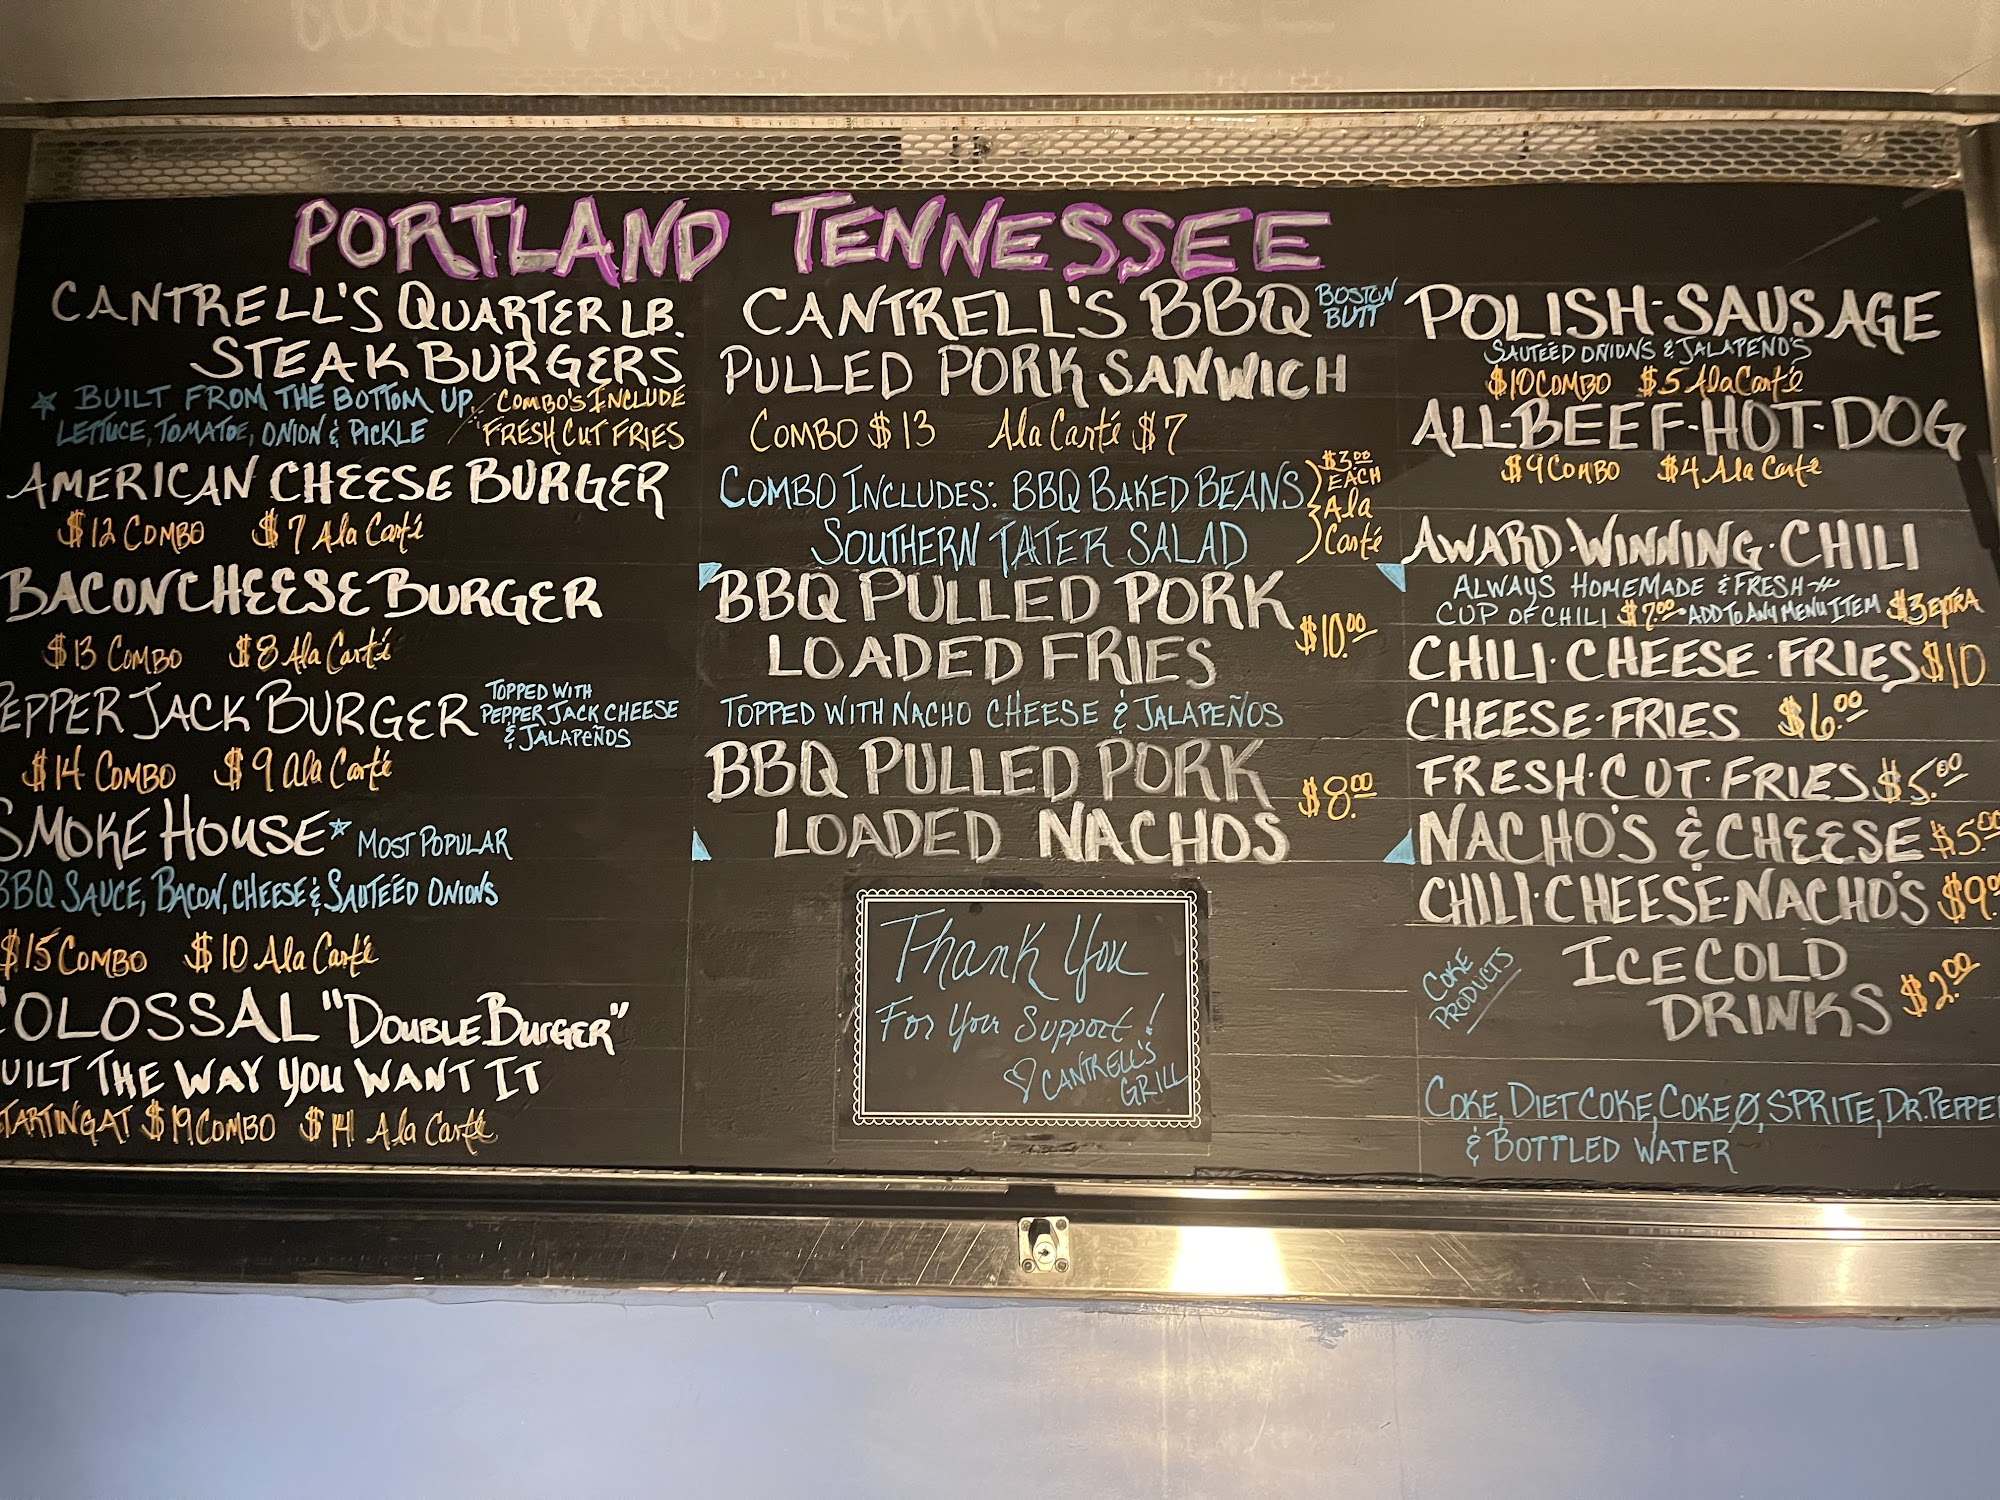 PORTLAND TENNESSEE
CANTRELL'S QUARTER LB.
STEAK BURGERS
BUILT FROM THE BOTTOM UP
LETTUCE, TOMATOE, ONION & PICKLE
COMBO'S INCLUDE
FRESH CUT FRIES
AMERICAN CHEESE BURGER
$12 COMBO $7 Ala Carté
BACON CHEESE BURGER
$13 COMBO $8 Ala Carté
PEPPER JACK BURGER
TOPPED WITH
PEPPER JACK CHEESE
& JALAPEÑOS
$14 COMBO $9 Ala Carté
SMOKE HOUSE MOST POPULAR
BBQ SAUCE, BACON, CHEESE & SAUTEÉD ONIONS
$15 COMBO $10 Ala Carté
COLOSSAL "DOUBLE BURGER"
BUILT THE WAY YOU WANT IT
STARTING AT $19 COMBO $14 Ala Carté
CANTRELL'S BBQ BOSTON
BUTT
PULLED PORK SANWICH
COMBO $13 Ala Carté $7
COMBO INCLUDES: BBQ BAKED BEANS
SOUTHERN TATER SALAD
$3.00
EACH
Ala
Carté
BBQ PULLED PORK
LOADED FRIES
$10.00
TOPPED WITH NACHO CHEESE & JALAPEÑOS
BBQ PULLED PORK
LOADED NACHOS
$8.00
Thank You
For Your Support!
♡ CANTRELL'S
GRILL
POLISH-SAUSAGE
SAUTEÉD ONIONS & JALAPENO'S
$10 COMBO $5 Ala Carté
ALL-BEEF-HOT-DOG
$9 COMBO $4 Ala Carté
AWARD·WINNING·CHILI
ALWAYS HOMEMADE & FRESH
CUP OF CHILI $7.00 ADD TO ANY MENU ITEM $3 EXTRA
CHILI·CHEESE·FRIES $10
CHEESE-FRIES $6.00
FRESH·CUT·FRIES $5.00
NACHO'S & CHEESE $5.00
CHILI·CHEESE·NACHO'S $9.00
COKE
PRODUCTS
ICE COLD
DRINKS
$2.00
COKE, DIET COKE, COKE Ø, SPRITE, DR. PEPPER
& BOTTLED WATER